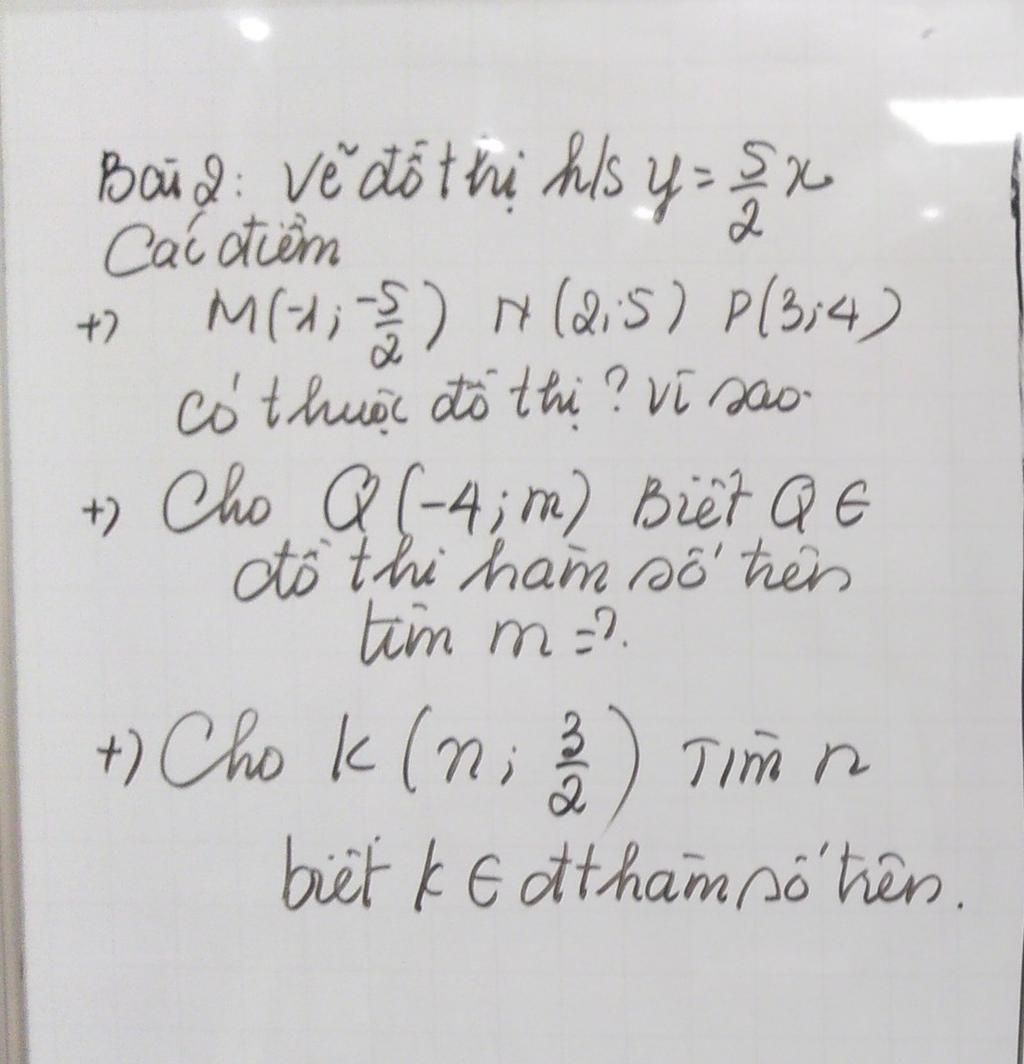 Bài 2: Vẽ đồ thị h/s y = 5/2 x
Các điểm
+) M(-1; -5/2) N (2;5) P(3;4)
có thuộc đồ thị? Vì sao.
+) Cho Q(-4;m) Biết Q ∈
đồ thi hàm số trên
tìm m =?.
+) Cho K (n; 3/2) Tìm n
biết K ∈ đt hàm số trên.